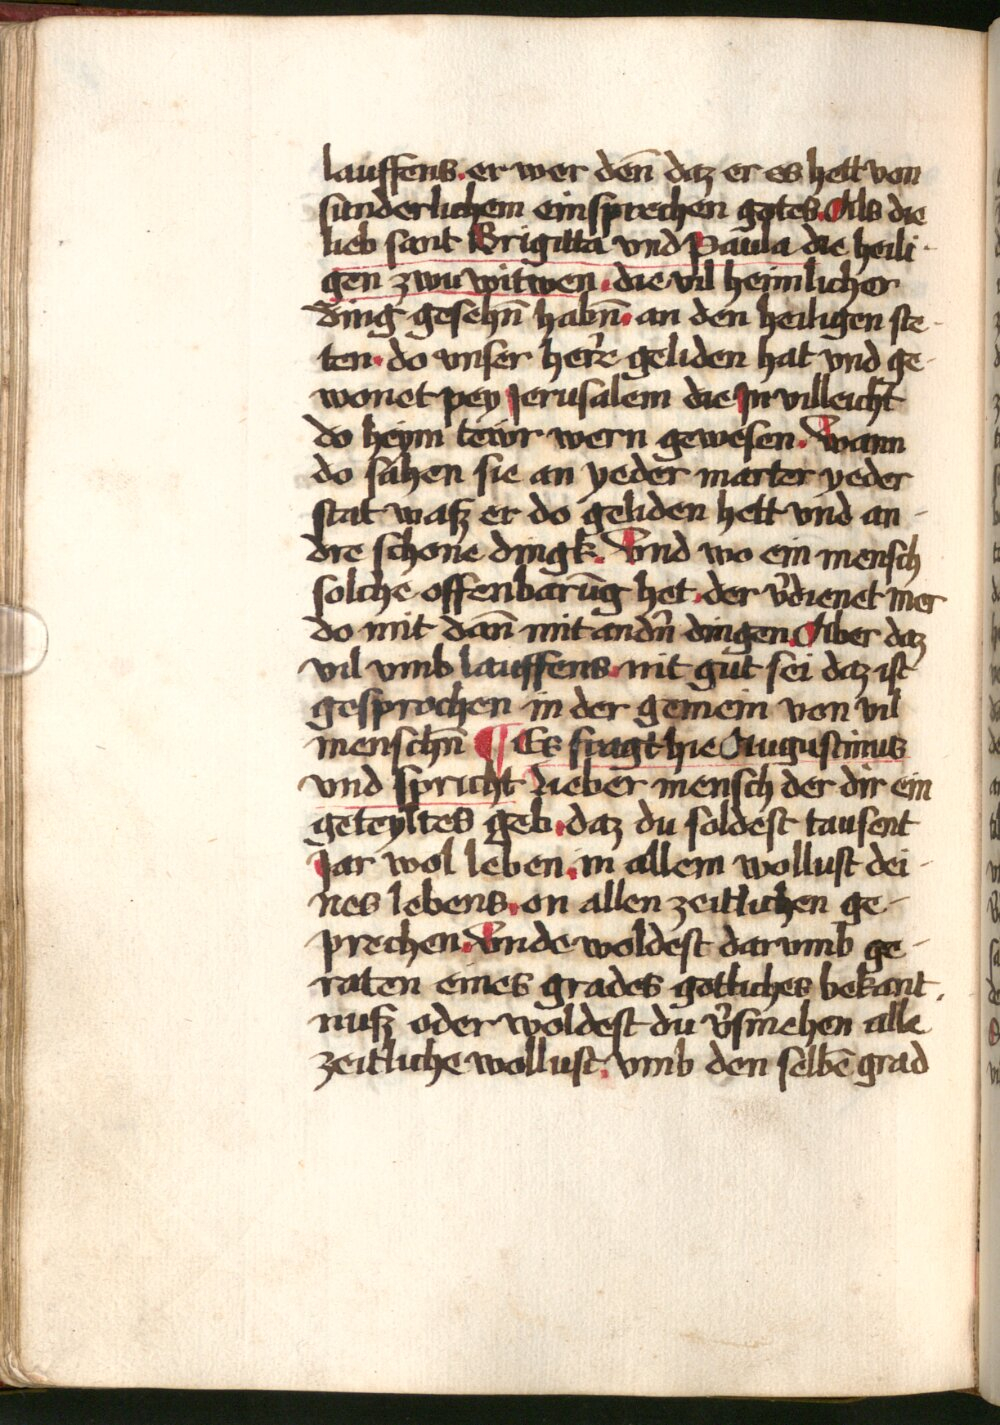 lauffens. er wer den̄ daz er es hett von
sunderlichem einsprechen gotes. Als die
lieb sant Brigitta vnd Paula die heili-
gen zwu witwen. die vil heimlicher
ding gesehn̄ habn̄. an den heiligen ste-
ten. do vnser her̄e geliden hat vnd ge-
wonet pey Jerusalem die Jn villeicht
do heym tewr wern gewesen. Wann
do sahen sie an yeder marter yeder
stat wasz er do geliden hett vnd an-
dre schone dingk. Vnd wo ein mensch
solche offenbarūg het. der v̄dienet mer
do mit dan̄ mit andn̄ dingen. Aber daz
vil vmb lauffens. nit gut sei daz ist
gesprochen in der gemein von vil
menschn̄ ¶ Es fragt hie Augustinus
vnd spricht Lieber mensch der dir ein
geteyltes geb. daz du soldest tausent
Jar wol leben. in allem wollust dei-
nes lebens. on allen zeitlichen ge-
prechen. Vnde woldest darumb ge-
raten eines grades gotliches bekant-
nusz oder woldest du v̄smehen alle
zeitliche wollust. vmb den selbē grad